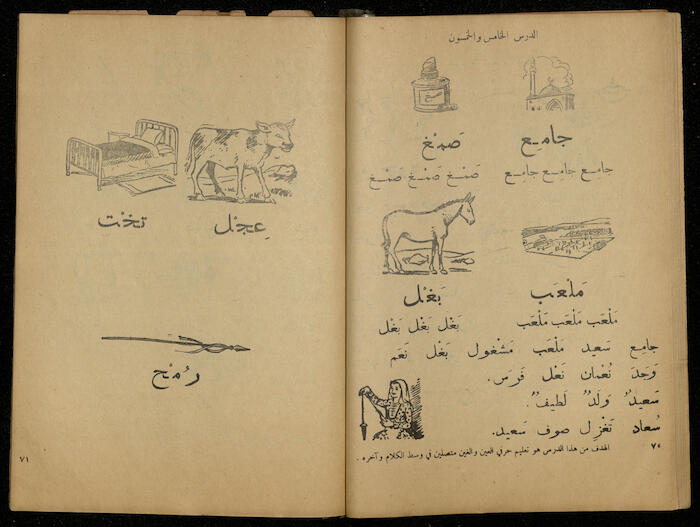 الدرس الخامس والخمسون
جامِع صَمْغ
جامِع جامِع جامِع صَمْغ صَمْغ صَمْغ
مَلْعَب بَغْل
مَلْعَب مَلْعَب مَلْعَب بَغْل بَغْل بَغْل
جامِع سَعيد مَلْعَب مَشْغول بَغْل نَعَم
وَجَدَ نُعْمان نَعْل فَرَس.
سَعيدٌ وَلَدٌ لَطيفٌ.
سُعاد تَغْزِل صوف سَعيد.
الهدف من هذا الدرس هو تعليم حرفي العين والغين متصلين في وسط الكلام وآخره .
٧٠
عِجْل تخْت
رُمْح
٧١